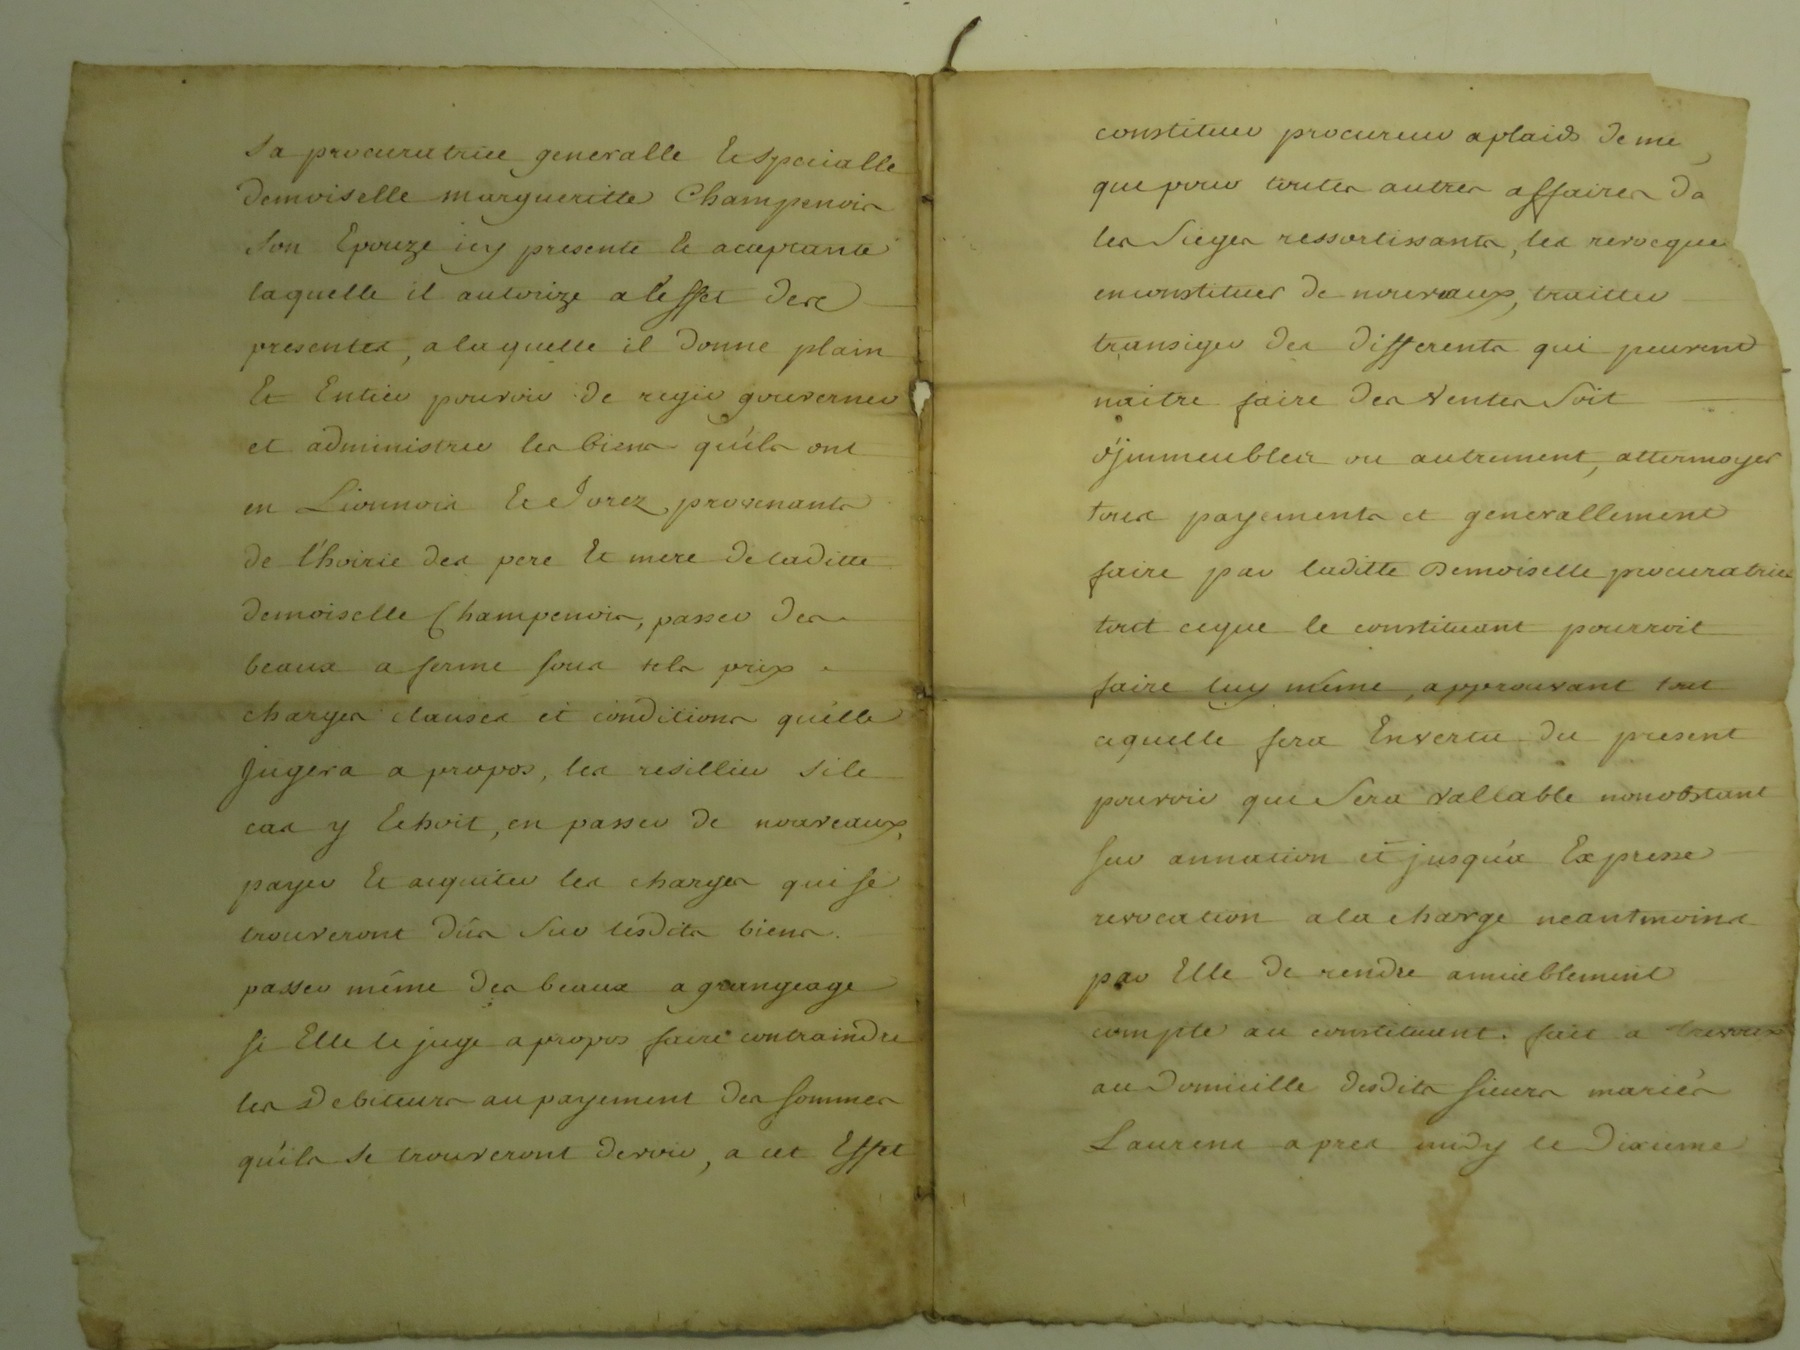 sa procuratrice generalle Et specialle
demoiselle margueritte Champenois
son Epouze icy presente Et acceptante
laquelle il autorize a l'effet des
presentes, a laquelle il donne plain
Et Entier pouvoir de regir gouverner
et administrer les biens qu'ils ont
en Lionnois Et Forez, provenants
de l'hoirie des pere Et mere de laditte
demoiselle Champenois, passer des
beaux a ferme sous tels prix
charges clauses et conditions qu'elle
jugera a propos, les resillier si le
cas y Echoit, en passer de nouveaux,
payer Et acquiter les charges qui se
trouveront dûs sur lesdits biens.
passer même des beaux a grangeage
si Elle le juge a propos faire contraindre
les debiteurs au payement des sommes
qu'ils se trouveront devoir, a cet Effet
constituer procureur a plaids de me
que pour toutes autres affaires da
les sieges ressortissants, les revoquer
en constituer de nouveaux, traitter
transiger des differents qui peuvent
naitre faire des ventes soit
d'jmmeubles ou autrement, attermoyer
tous payements et generallement
faire par laditte Demoiselle procuratrice
tout ceque le constituant pourroit
faire luy même, approuvant tout
cequelle fera En vertu du present
pouvoir qui sera vallable nonobstant
sur annation et jusqu'a Expresse
revocation a la charge neantmoins
par Elle de rendre amiablement
compte au constituant. fait a trevoux
au domicille desdits sieurs mariés
Laurens apres midy le dixieme